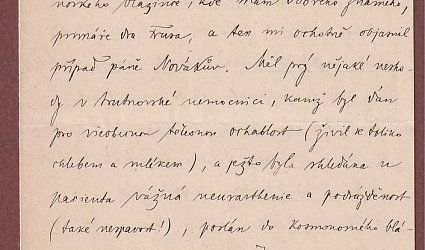 norkého blázince, kde mám dobrého známého,
primáře dra Trusa, a ten mi ochotně objasnil
případ páně Novákův. Měl prý nějaké nesho-
dy v trutnovské nemocnici, kamž byl dán
pro všeobecnou tělesnou ochablost (živil se toliko
chlebem a mlékem), a ježto byla shledána u
pacienta vážná neurasthenie a podrážděnost
(také nespavost!), poslán do kosmonosského blá-